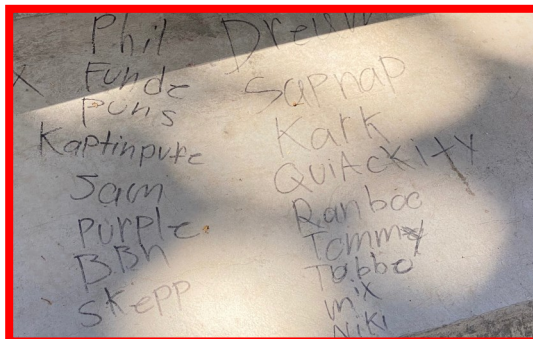 Phil
Funde
Puns
Kaptinpufe
Sam
Purple
BBh
Skepp
X
Sapnap
Kark
QuiAckity
Ranboo
Tommy
Tubbo
mix
Niki